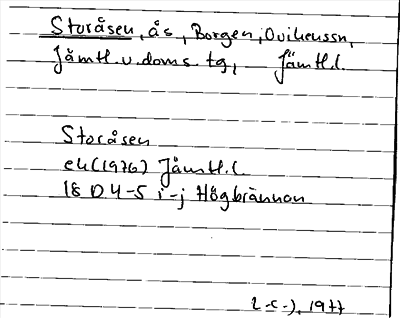 Storåsen, ås, Borgen, Ovikenssn,
Jämtl. v. doms. tg, Jämtl. l.
Storåsen
ek (1976) Jämtl. l.
18 D 4-5 i-j Högbrännan
1977